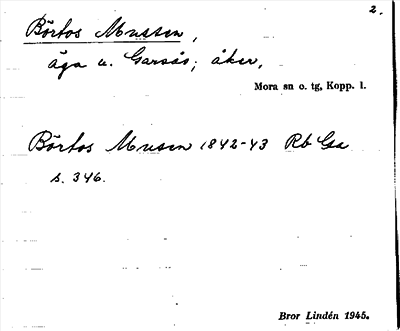 2.
Börtos Mussen,
äga u. Garsås; åker,
Mora sn o. tg, Kopp. l.
Börtos Musen 1842-43 Rb Gsa
s. 346.
Bror Lindén 1945.